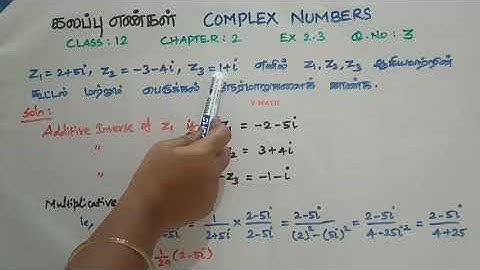 கலப்பு எண்கள் COMPLEX NUMBERS
CLASS: 12 CHAPTER: 2 EX 2.3 Q.No: 3
Z₁ = 2+5i, Z₂ = -3-4i, Z₃ = 1+i எனில் Z₁, Z₂, Z₃ ஆகியவற்றின்
கூட்டல் மற்றும் பெருக்கல் காண்க.
V MATH
Soln:
Additive Inverse of Z₁ is Z₁ = -2-5i
" = 3+4i
" -Z₃ = -1-i
Multiplicative
ie, = 1/(2+5i) × (2-5i)/(2-5i) = (2-5i)/((2)²-(5i)²) = (2-5i)/(4-25i²) = (2-5i)/(4+25)
1/29 (2-5i)